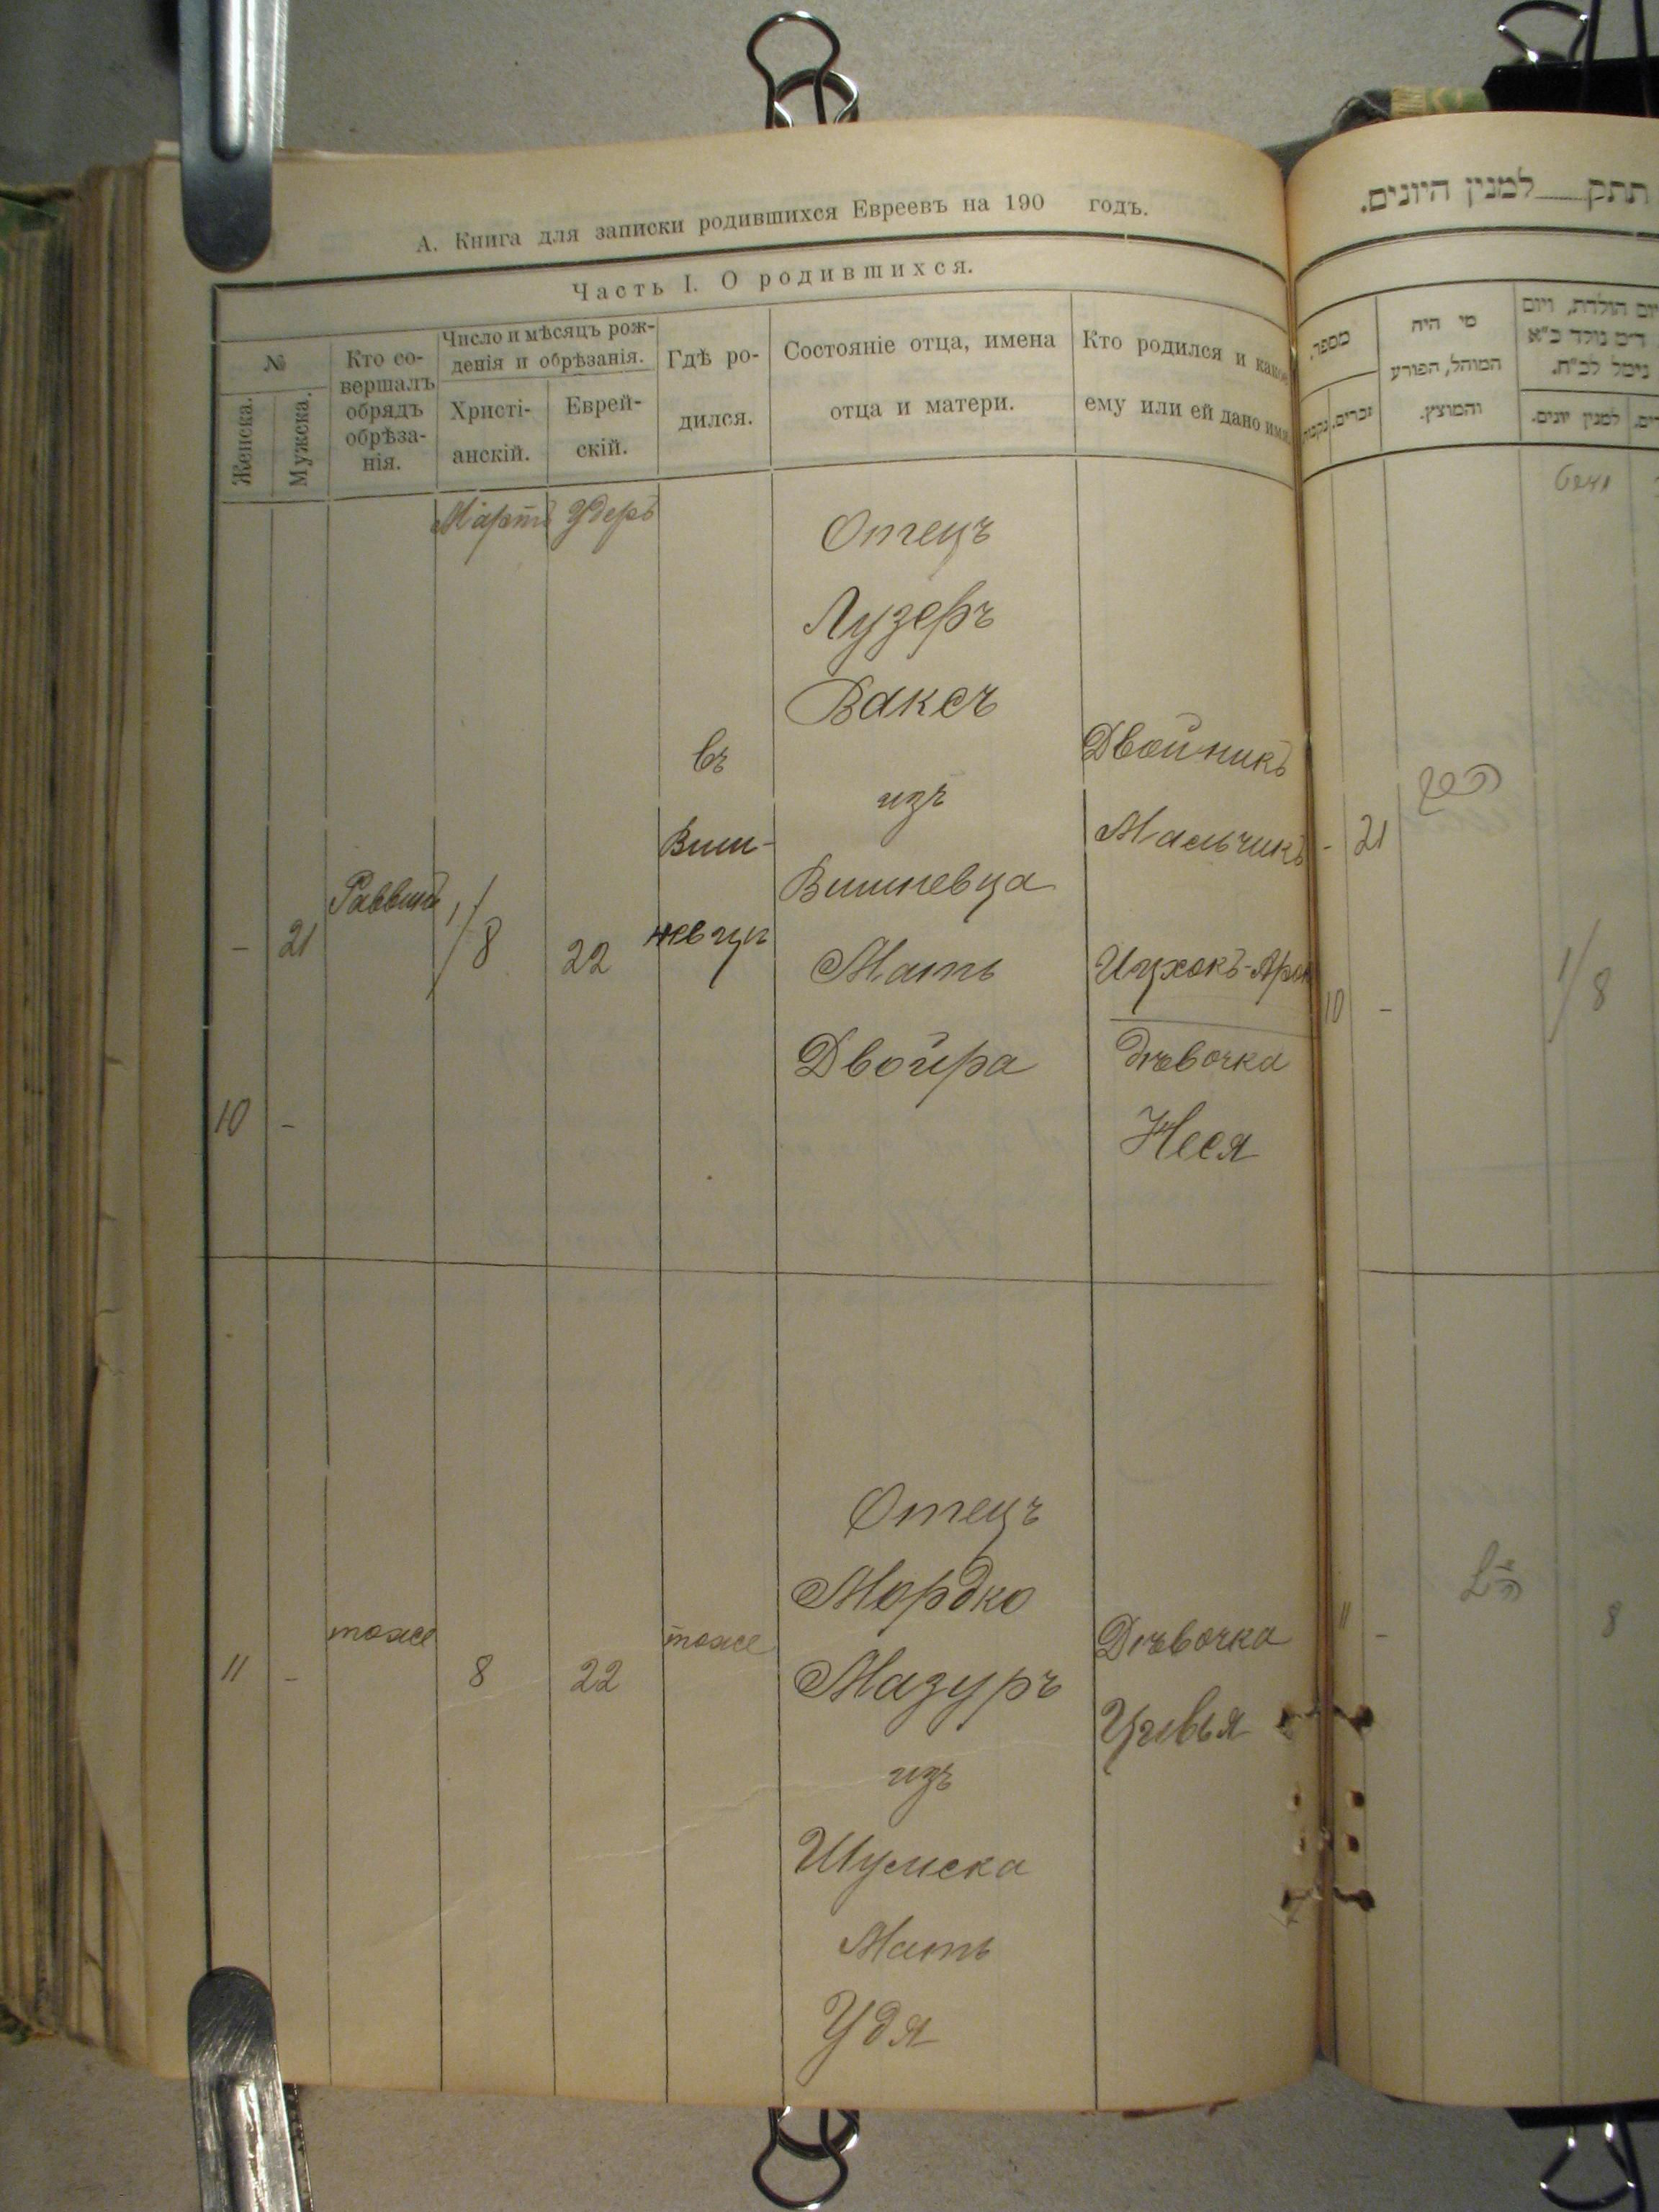 А. Книга для записки родившихся Евреевъ на 190 годъ.
Часть I. О родившихся.
№
Женска.
Мужска.
Кто со-
вершалъ
обрядъ
обрѣза-
нія.
Число и мѣсяцъ рож-
денія и обрѣзанія.
Христі-
анскій.
Еврей-
скій.
Гдѣ ро-
дился.
Состояніе отца, имена
отца и матери.
Кто родился и какое
ему или ей дано имя.
Мартъ Удеръ
- 21
Раввинъ
1/8
22
въ
Виш-
невцѣ
Отецъ
Лузеръ
Ваксъ
изъ
Вишневца
Мать
Двойра
Двойникъ
Мальчикъ
Ицхокъ-Арон
10 -
дѣвочка
Неся
11 -
тоже
8
22
тоже
Отецъ
Мордко
Мазуръ
изъ
Шумска
Мать
Удя
Дѣвочка
Цивья
תתק למנין היונים.
מספר.
זכרים.
נקבות
מי היה
המוהל, הפורע
והמוצץ.
יום הולדת, ויום
נימול לכ"ח.
למנין יונים.
- 21
10 -
1/8
11 -
8